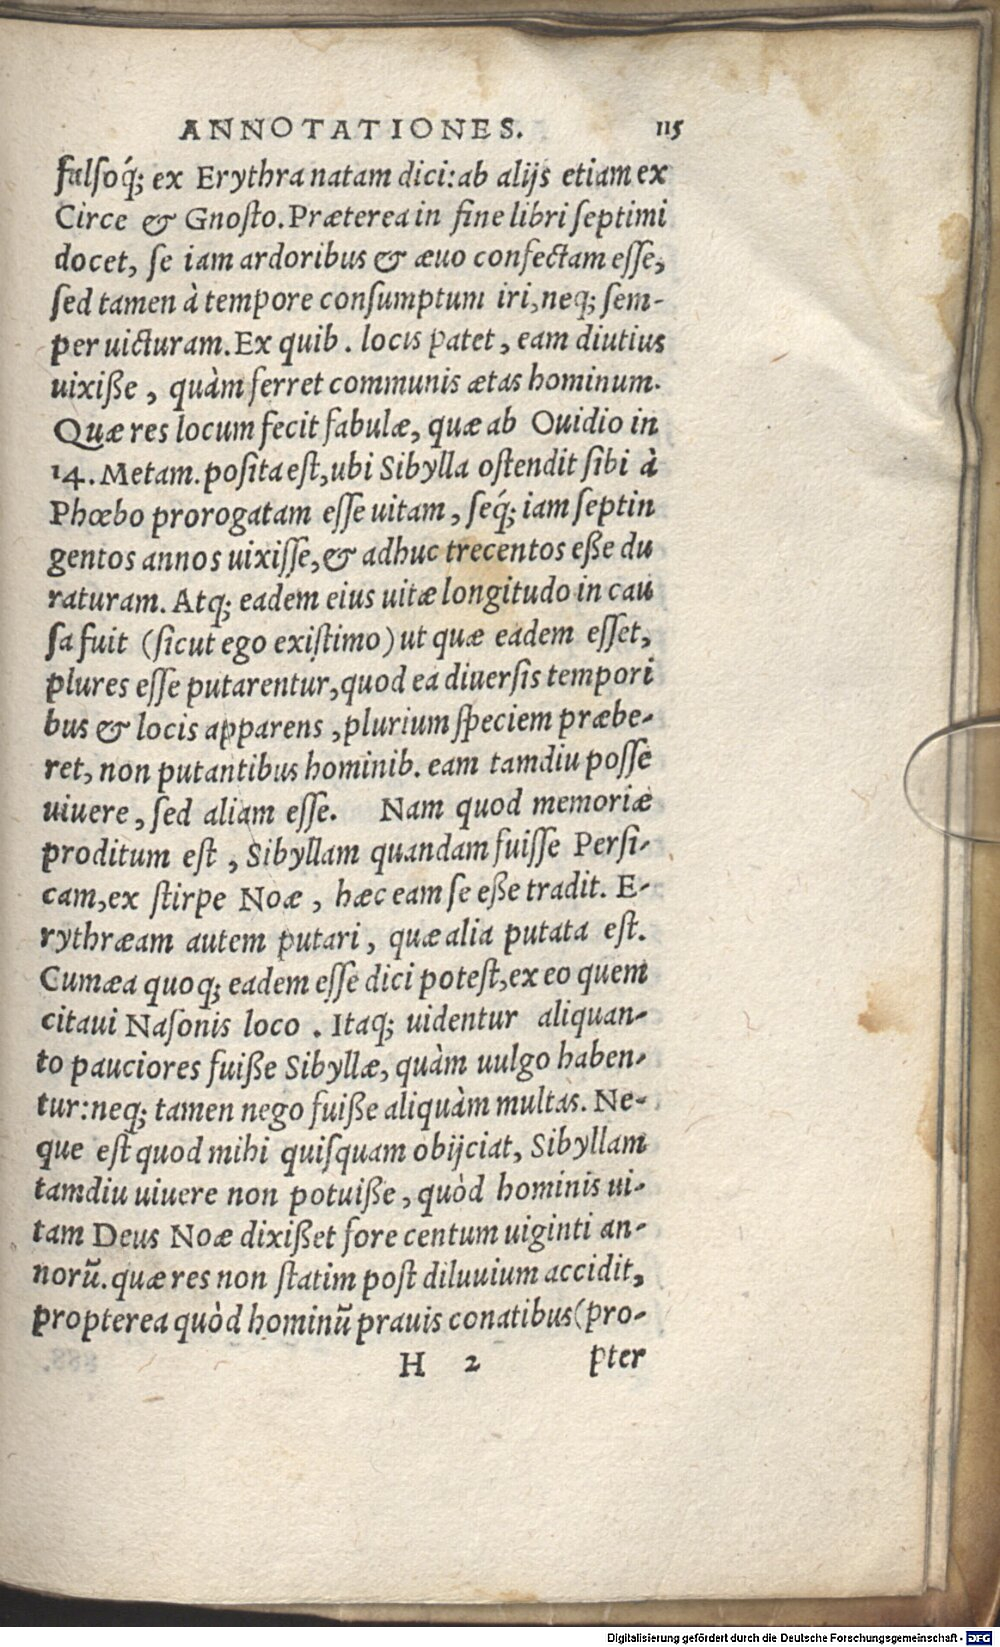 ANNOTATIONES. 115
falſoq́; ex Erythra natam dici: ab alijs etiam ex
Circe & Gnoſto. Præterea in fine libri ſeptimi
docet, ſe iam ardoribus & æuo confectam eſſe,
ſed tamen à tempore conſumptum iri, neq; ſem-
per uicturam. Ex quib. locis patet, eam diutius
uixiße, quàm ferret communis ætas hominum.
Quæ res locum fecit fabulæ, quæ ab Ouidio in
14. Metam. poſita eſt, ubi Sibylla oſtendit ſibi à
Phœbo prorogatam eſſe uitam, ſeq́; iam ſeptin
gentos annos uixiſſe, & adhuc trecentos eße du
raturam. Atq; eadem eius uitæ longitudo in cau
ſa fuit (ſicut ego exiſtimo) ut quæ eadem eſſet,
plures eſſe putarentur, quod ea diuerſis tempori
bus & locis apparens, plurium ſpeciem præbe-
ret, non putantibus hominib. eam tamdiu poſſe
uiuere, ſed aliam eſſe. Nam quod memoriæ
proditum eſt, Sibyllam quandam fuiſſe Perſi-
cam, ex ſtirpe Noæ, hæc eam ſe eße tradit. E-
rythræam autem putari, quæ alia putata eſt.
Cumæa quoq; eadem eſſe dici poteſt, ex eo quem
citaui Naſonis loco. Itaq; uidentur aliquan-
to pauciores fuiße Sibyllæ, quàm uulgo haben-
tur: neq; tamen nego fuiße aliquàm multas. Ne-
que eſt quod mihi quiſquam obijciat, Sibyllam
tamdiu uiuere non potuiße, quòd hominis ui-
tam Deus Noæ dixißet fore centum uiginti an-
norũ. quæ res non ſtatim poſt diluuium accidit,
propterea quòd hominũ prauis conatibus (pro-
H 2 pter
Digitalisierung gefördert durch die Deutsche Forschungsgemeinschaft - DFG